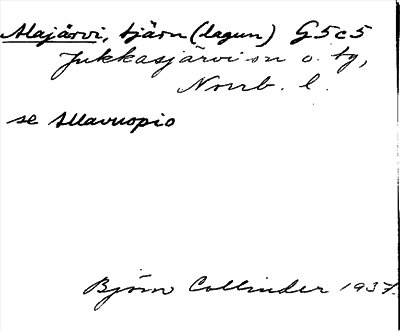 Alajärvi, tjärn (lagun) G5c5
Jukkasjärvi sn o. tg,
Norrb. l.
se Allavuopio
Björn Collinder 1937.